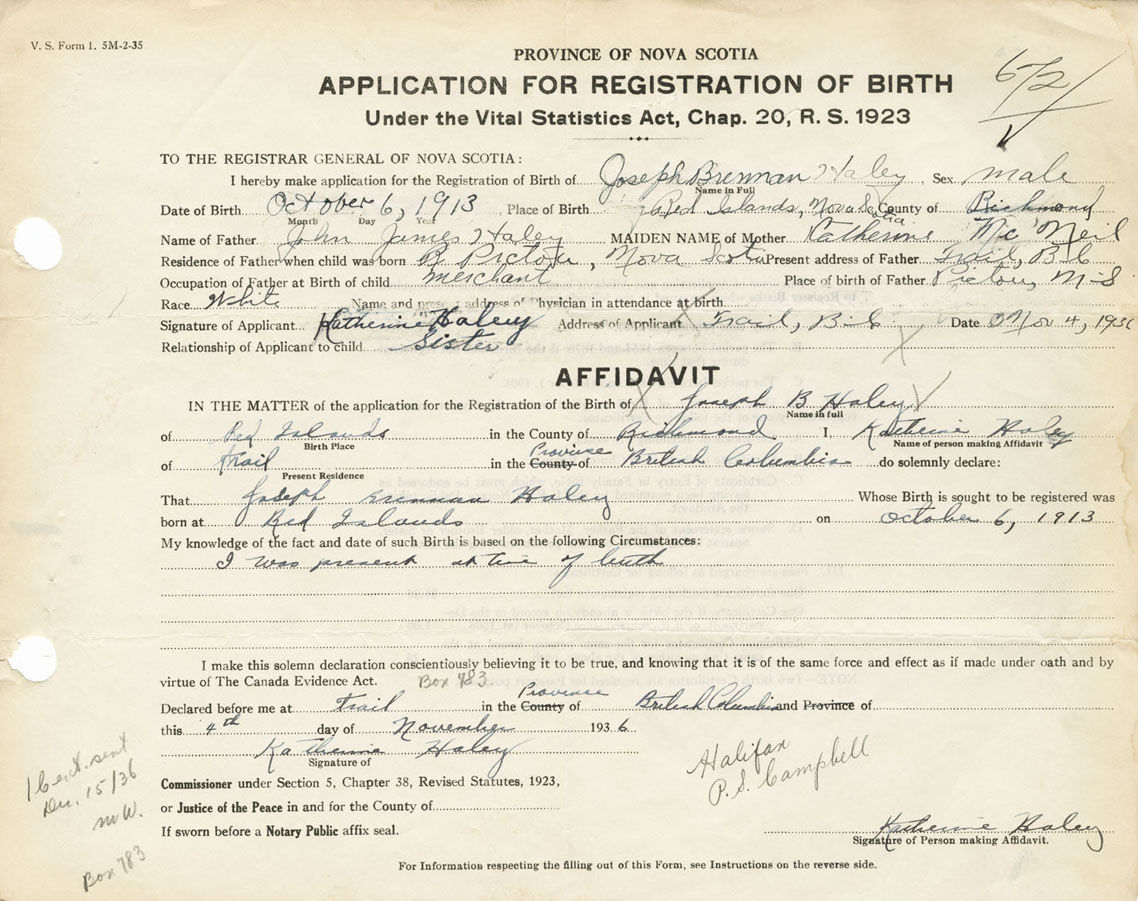 V. S. Form 1. 5M-2-35
PROVINCE OF NOVA SCOTIA
672
APPLICATION FOR REGISTRATION OF BIRTH
Under the Vital Statistics Act, Chap. 20, R. S. 1923
TO THE REGISTRAR GENERAL OF NOVA SCOTIA:
I hereby make application for the Registration of Birth of Joseph Brennan Haley, Sex male
Name in Full
Date of Birth October 6, 1913, Place of Birth Red Islands, Nova Scotia County of Richmond
Month Day Year
Name of Father John James Haley MAIDEN NAME of Mother Katherine Mc Neil
Residence of Father when child was born Pictou, Nova Scotia Present address of Father Trail, B C
Occupation of Father at Birth of child merchant Place of birth of Father Pictou, N-S
Race White Name and present address of Physician in attendance at birth
Signature of Applicant Katherine Haley Address of Applicant Trail, B.C Date Nov 4, 1936
Relationship of Applicant to child Sister
AFFIDAVIT
IN THE MATTER of the application for the Registration of the Birth of Joseph B Haley
Name in full
of Red Islands in the County of Richmond I, Katherine Haley
Birth Place Name of person making Affidavit
of Trail in the County Province of British Columbia do solemnly declare:
Present Residence
That Joseph Brennan Haley Whose Birth is sought to be registered was
born at Red Islands on October 6, 1913
My knowledge of the fact and date of such Birth is based on the following Circumstances:
I was present at time of birth
I make this solemn declaration conscientiously believing it to be true, and knowing that it is of the same force and effect as if made under oath and by
virtue of The Canada Evidence Act. Box 783
Declared before me at Trail in the County Province of British Columbia and Province of
this 4th day of November 1936
Katherine Haley
Signature of
Halifax
P. S. Campbell
Commissioner under Section 5, Chapter 38, Revised Statutes, 1923,
or Justice of the Peace in and for the County of
If sworn before a Notary Public affix seal.
1 Cert. sent
Dec. 15/36
m W.
Box 783
Katherine Haley
Signature of Person making Affidavit.
For Information respecting the filling out of this Form, see Instructions on the reverse side.